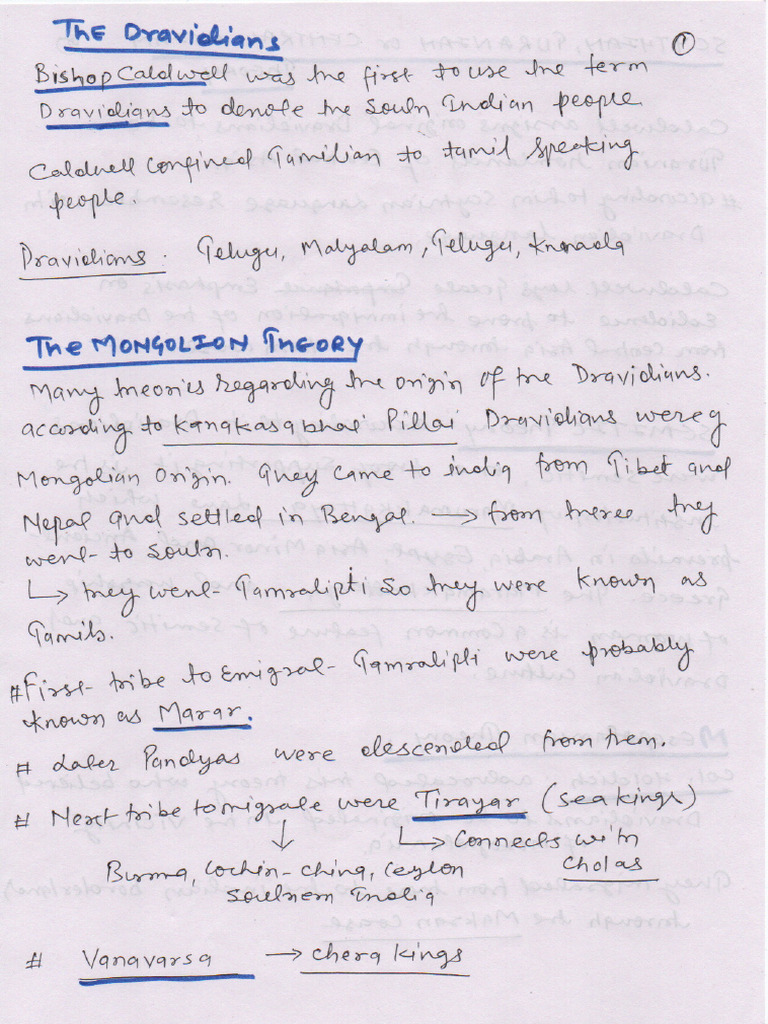 The Dravidians
①
Bishop Caldwell was the first to use the term
Dravidians to denote the South Indian people.
Caldwell confined Tamilian to tamil speaking
people.
Dravidians : Telugu, Malyalam, Telugu, Knnada
The MONGOLION THEORY
Many theories regarding the origin of the Dravidians.
according to Kanakasabhai Pillai Dravidians were of
Mongolian Origin. They came to india from Tibet and
Nepal and settled in Bengal. → from there they
went to South.
↳ they went Tamralipti so they were known as
Tamils.
# First tribe to Emigrat Tamralipti were probably
known as Marar.
# Later Pandyas were descended from them.
# Next tribe to migrate were Tirayar (Sea kings)
↓ ↳ Connects with
Burma, Cochin-china, Ceylon Cholas
Southern India
# Vanavarsa → chera kings